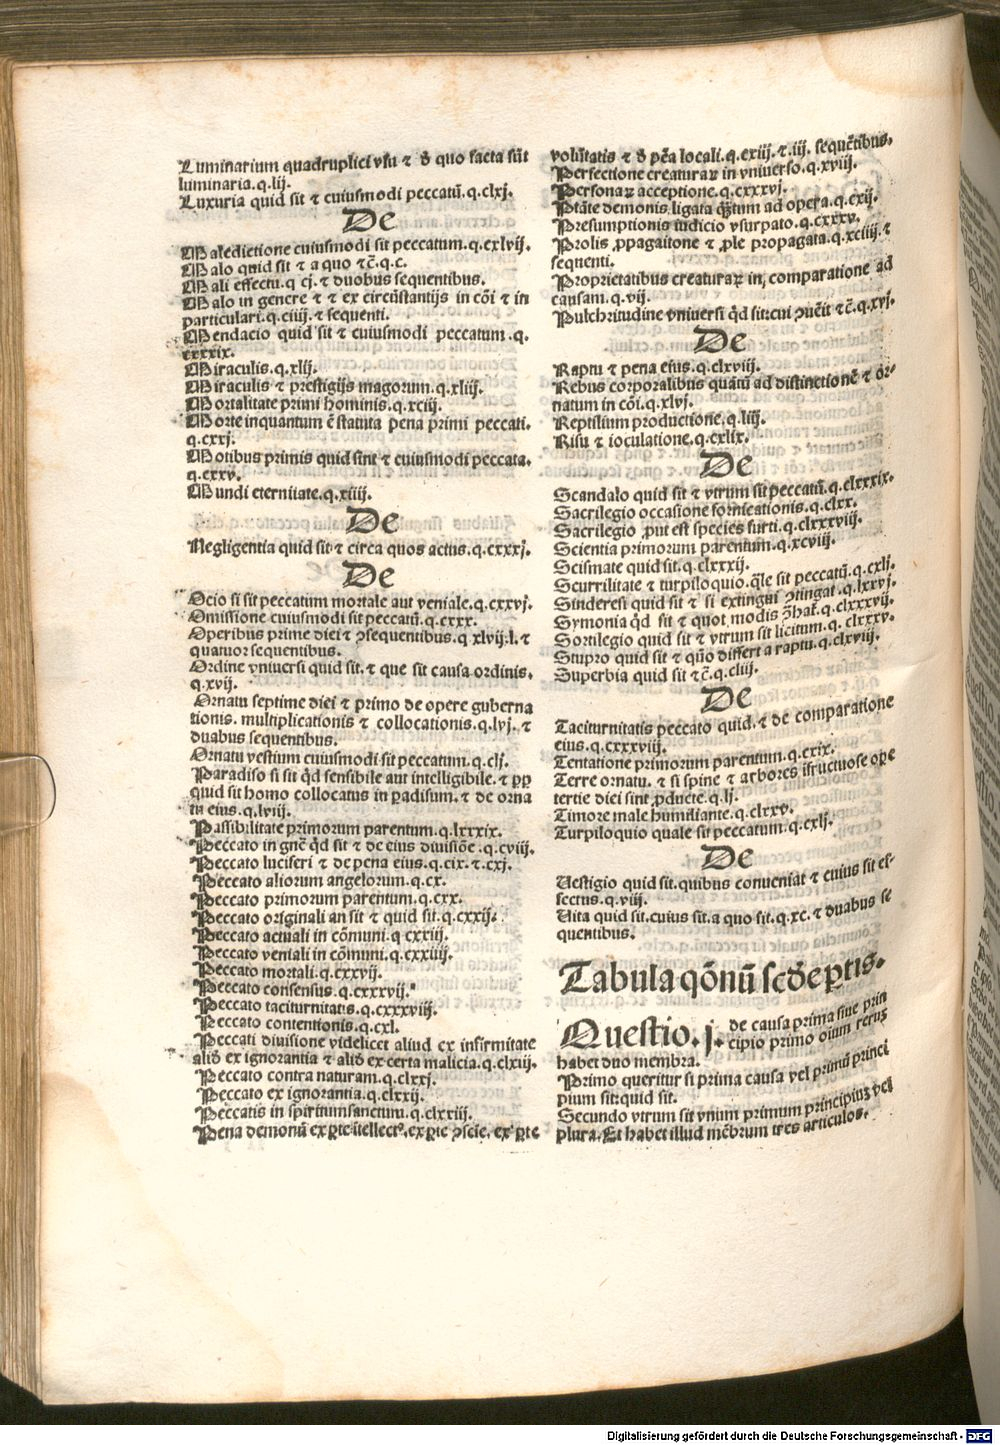 Luminarium quadruplici vsu ⁊ đ quo facta sūt
luminaria.q.lij.
Luxuria quid sit ⁊ cuiusmodi peccatū.q.clxj.
De
Maledictione cuiusmodi sit peccatum.q.cxlvij.
Malo quid sit ⁊ a quo ⁊c̄.q.c.
Mali effectu.q cj.⁊ duobus sequentibus.
Malo in genere ⁊ ⁊ ex circūstantijs in cōi ⁊ in
particulari.q.ciiij.⁊ sequenti.
Mendacio quid sit ⁊ cuiusmodi peccatum.q.
cxxxix.
Miraculis.q.xlij.
Miraculis ⁊ prestigijs magorum.q.xliij.
Mortalitate primi hominis.q.xciij.
Morte inquantum ē statuta pena primi peccati.
q.cxxj.
Motibus primis quid sint ⁊ cuiusmodi peccata.
q.cxxv.
Mundi eterniiate.q.xiiij.
De
Negligentia quid sit ⁊ circa quos actus.q.cxxxj.
De
Ocio si sit peccatum mortale aut veniale.q.cxxvj.
Omissione cuiusmodi sit peccatū.q.cxxx.
Operibus prime diei ⁊ ꝯsequentibus.q xlvij.l.⁊
quatuor sequentibus.
Ordine vniuersi quid sit.⁊ que sit causa ordinis.
q.xvij.
Ornatu septime diei ⁊ primo de opere guberna
tionis. multiplicationis ⁊ collocationis.q.lvj. ⁊
duabus sequentibus.
Ornatu vestium cuiusmodi sit peccatum.q.clj.
Paradiso si sit q̄d sensibile aut intelligibile.⁊ ꝓp
quid sit homo collocatus in ꝑadisum.⁊ de orna
tu eius.q.lviij.
Passibilitate primorum parentum.q.lxxxix.
Peccato in gn̄e q̄d sit ⁊ de eius diuisiōe.q.cviij.
Peccato luciferi ⁊ de pena eius.q.cix.⁊.cxj.
Peccato aliorum angelorum.q.cx.
Peccato primorum parentum.q.cxx.
Peccato originali an sit ⁊ quid sit.q.cxxij.
Peccato actuali in cōmuni.q cxxiij.
Peccato veniali in cōmuni.q.cxxiiij.
Peccato mortali.q.cxxvij.
Peccato consensus.q.cxxxvij.
Peccato taciturnitatis.q.cxxxviij.
Peccato contentionis.q.cxl.
Peccati diuisione videlicet aliud ex infirmitate
aliđ ex ignorantia ⁊ aliđ ex certa malicia.q.clxiij.
Peccato contra naturam.q.clxxj.
Peccato ex ignorantia.q.clxxij.
Peccatis in spiritumsanctum.q.clxxiij.
Pena demonū ex ꝑte ītellectꝰ.ex ꝑte ꝯscīe. ex ꝑte
volūtatis ⁊ đ pēa locali.q.cxiij.⁊.iij. sequētibus.
Perfectione creaturaꝝ in vniuerso.q.xviij.
Personaꝝ acceptione.q.cxxxvj.
Ptāte demonis ligata q̄ȝtum ad opera.q.cxij.
Presumptionis iudicio vsurpato.q.cxxxv.
Prolis ꝓpagaitone ⁊ ꝓle propagata.q.xciiij.⁊
sequenti.
Proprietatibus creaturaꝝ in comparatione ad
causam.q.vij.
Pulchritudine vniuersi q̄d sit:cui ꝯuēit ⁊c̄.q.xvj.
De
Raptu ⁊ pena eius.q.clxviij.
Rebus corporalibus quātū ad distinctionē ⁊ or-
natum in cōi.q.xlvj.
Reptilium productione.q.liij.
Risu ⁊ ioculatione.q.cxlix.
De
Scandalo quid sit ⁊ vtrum sit peccatū.q.clxxxix.
Sacrilegio occasione fornicationis.q.clxx.
Sacrilegio ꝓut est species furti.q.clxxxviij.
Scientia primorum parentum.q.xcviij.
Scismate quid sit.q.clxxxij.
Scurrilitate ⁊ turpiloquio.q̄le sit peccatū.q.cxlj.
Sinderesi quid sit ⁊ si extingui ꝯtingat.q.lxxvj.
Symonia q̄d sit ⁊ quot modis ꝯ̄hat̄.q.clxxxvij.
Sortilegio quid sit ⁊ vtrum sit licitum.q.clxxxv.
Stupro quid sit ⁊ qūo differt a raptu.q.clxviij.
Superbia quid sit ⁊c̄.q.cliij.
De
Taciturnitatis peccato quid.⁊ de comparatione
eius.q.cxxxviij.
Tentatione primorum parentum.q.cxix.
Terre ornatu.⁊ si spine ⁊ arbores ifructuose ope
tertie diei sint ꝓducte.q.lj.
Timore male humiliante.q.clxxv.
Turpiloquio quale sit peccatum.q.cxlj.
De
Uestigio quid sit.quibus conueniat ⁊ cuius sit ef-
fectus.q.viij.
Uita quid sit.cuius sit.a quo sit.q.xc.⁊ duabus se
quentibus.
Tabula qōnū scđe ꝑtis.
Questio.j. de causa prima siue prin
cipio primo oium rerūꝫ
habet duo membra.
Primo queritur si prima causa vel primū princi
pium sit:quid sit.
Secundo vtrum sit vnum primum principiuꝫ vel
plura.Et habet illud mēbrum tres articulos.
Digitalisierung gefördert durch die Deutsche Forschungsgemeinschaft - DFG